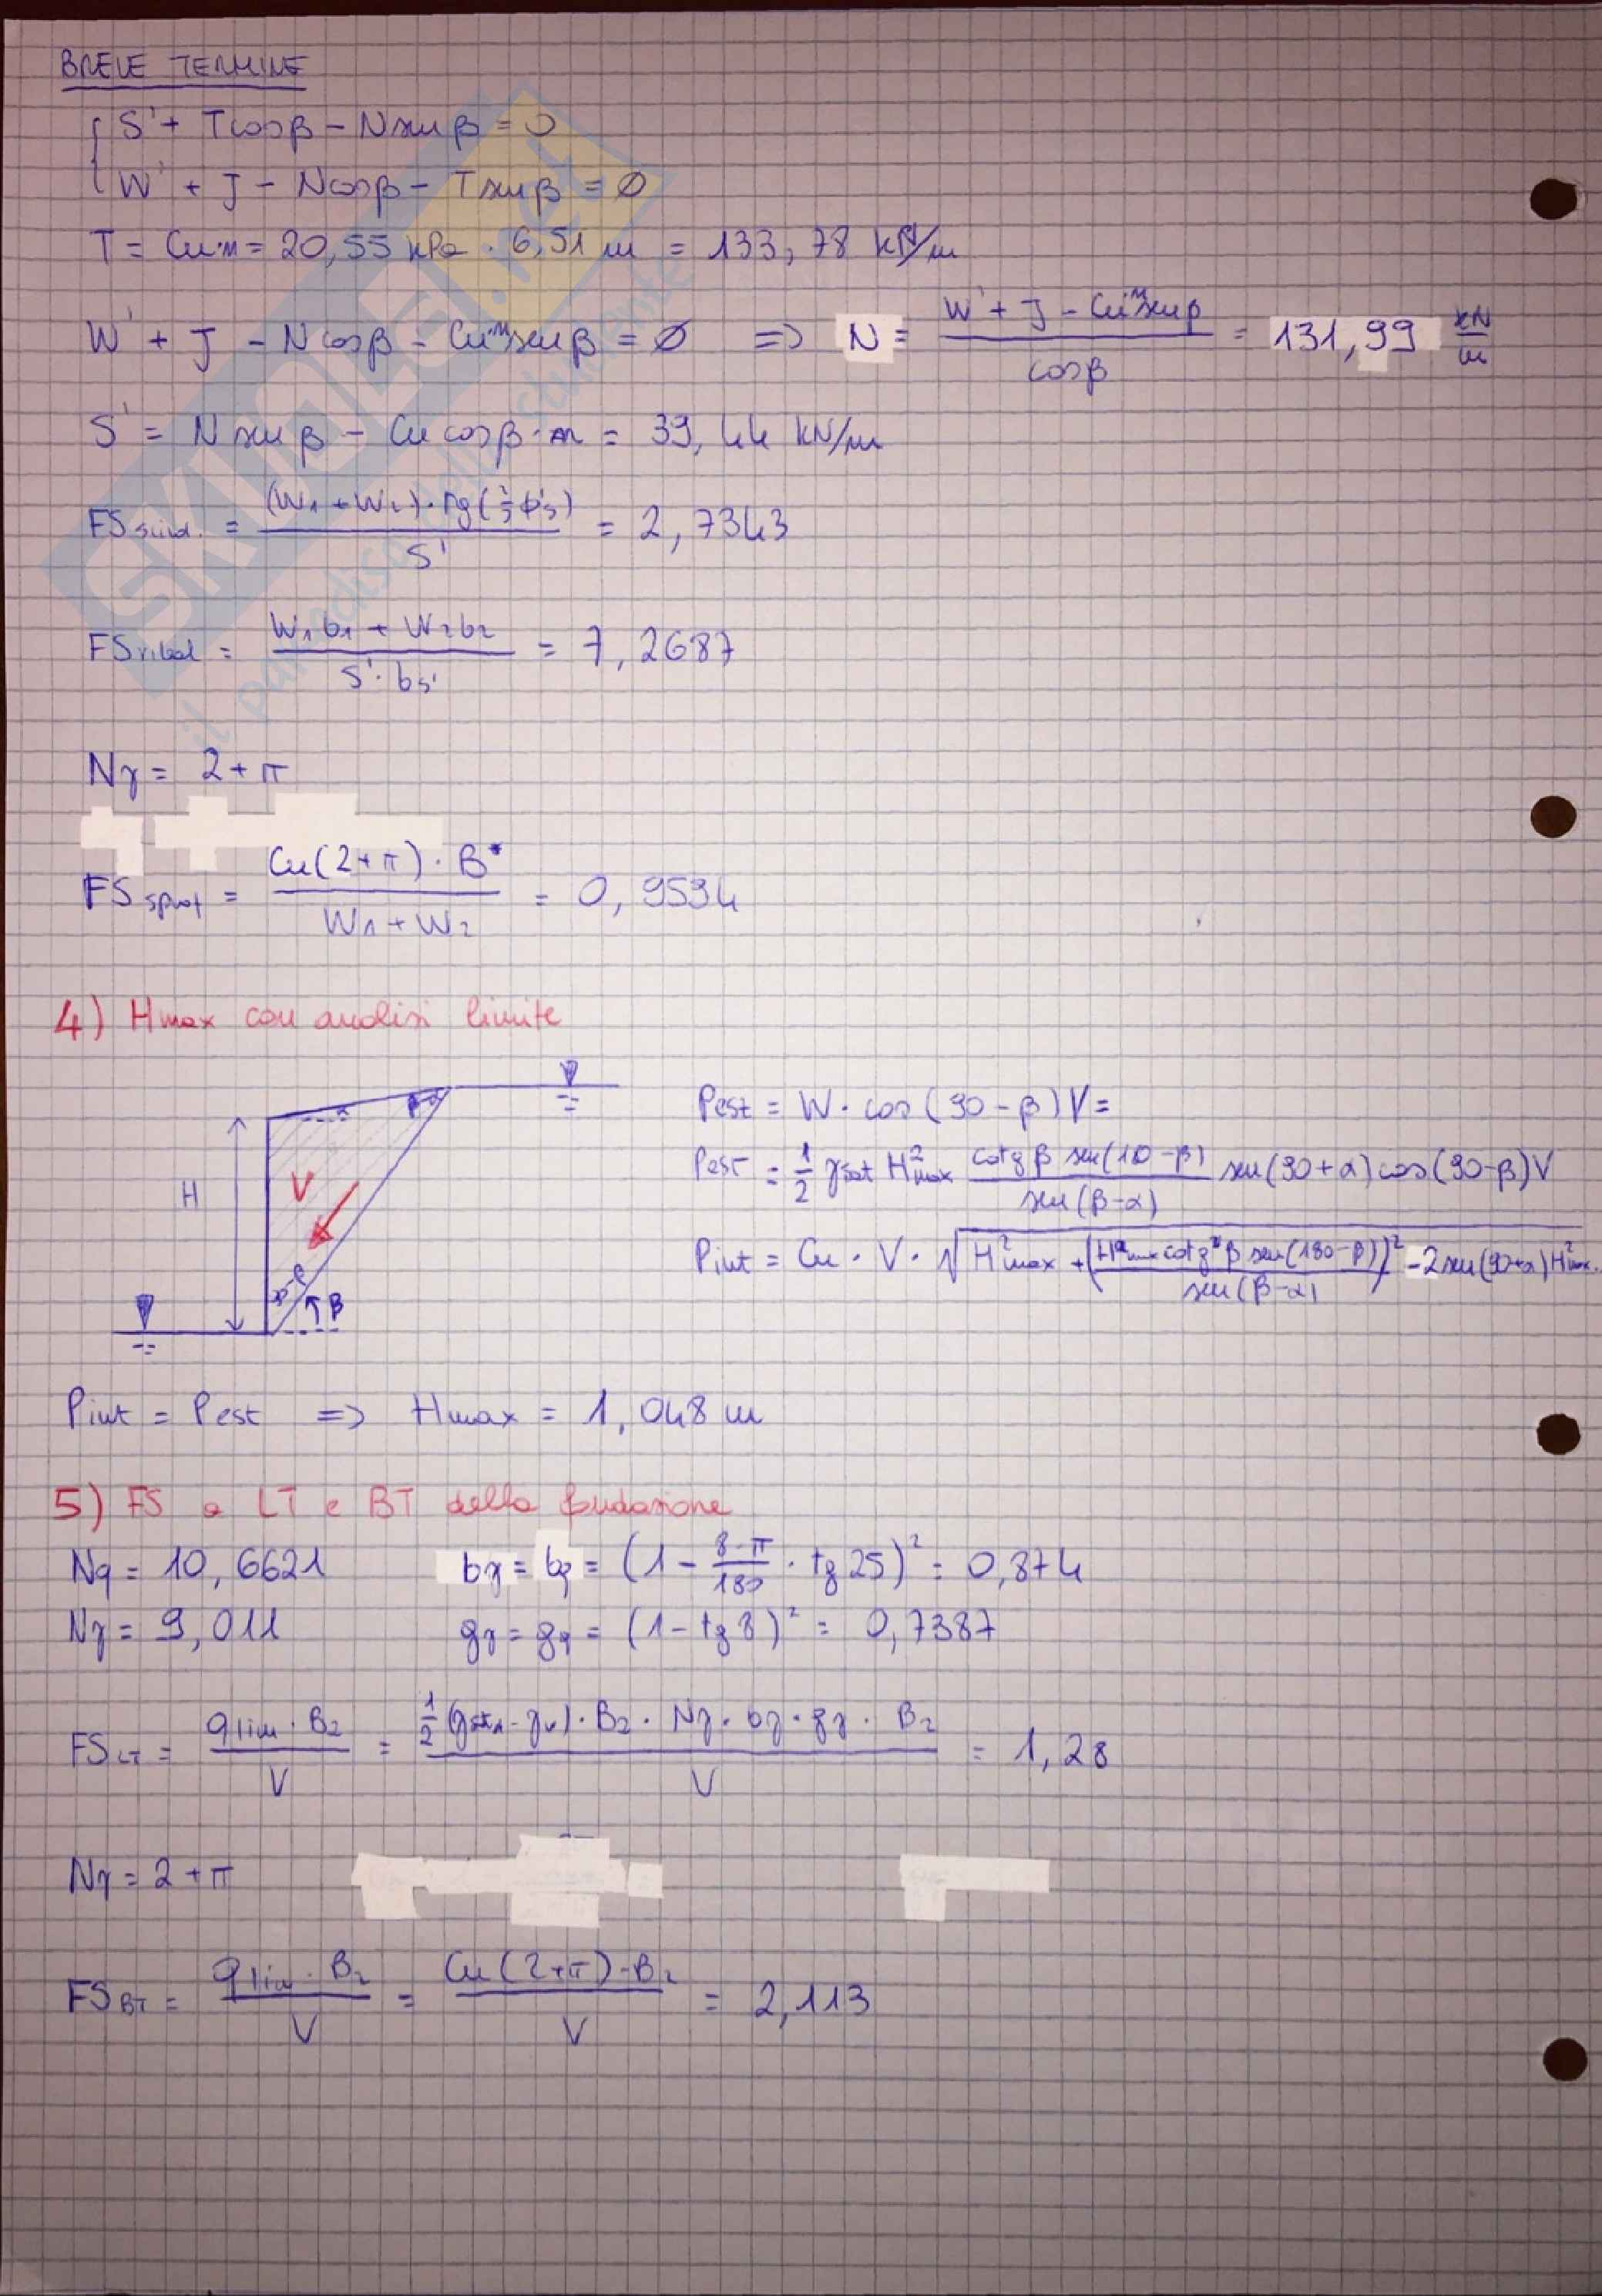 BREVE TERMINE
S' + T cosβ - N senβ = 0
W' + J - N cosβ - T senβ = Ø
T = Cu·m = 20,55 kPa · 6,51 m = 133,78 kN/m
W' + J - N cosβ - Cu·m senβ = Ø => N = (W' + J - Cu·m senβ)/cosβ = 131,99 kN/m
S' = N senβ - Cu cosβ·m = 39,44 kN/m
FS scivol. = (W1 + W2)·tg(2/3 ϕ's)/S' = 2,7343
FS ribal = (W1b1 + W2b2)/(S'·bs') = 7,2687
Nγ = 2+π
FS sprof = Cu(2+π)·B*/(W1+W2) = 0,9534
4) Hmax con analisi limite
Pest = W·cos(90-β)V =
Pest = 1/2 γsat H²max cotgβ sen(180-β)/sen(β-α) sen(90+α) cos(90-β)V
Pint = Cu · V · √H²max + (Hmax cotgβ sen(180-β)/sen(β-α))² - 2sen(90+α)H²max.
H
V
α
β-α
90-β
β
Pint = Pest => Hmax = 1,048 m
5) FS a LT e BT della fondazione
Nq = 10,6621 bγ = bq = (1 - 8·π/180 · tg25)² = 0,874
Nγ = 9,011 gγ = gq = (1-tg8)² = 0,7387
FS LT = qlim·B2/V = 1/2(γsat1-γw)·B2·Nγ·bγ·gγ·B2/V = 1,28
Nγ = 2+π
FS BT = qlim·B2/V = Cu(2+π)·B2/V = 2,113
SKUOLA.net
il paradiso dello studente